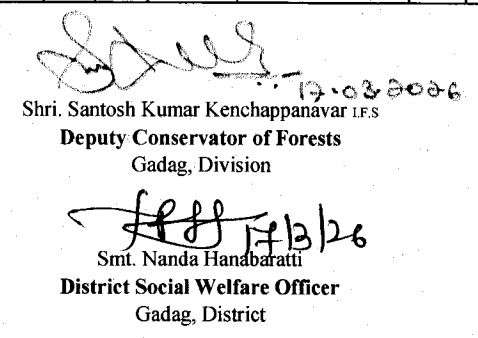 17.03.2026
Shri. Santosh Kumar Kenchappanavar I.F.S
Deputy Conservator of Forests
Gadag, Division
17/3/26
Smt. Nanda Hanabaratti
District Social Welfare Officer
Gadag, District